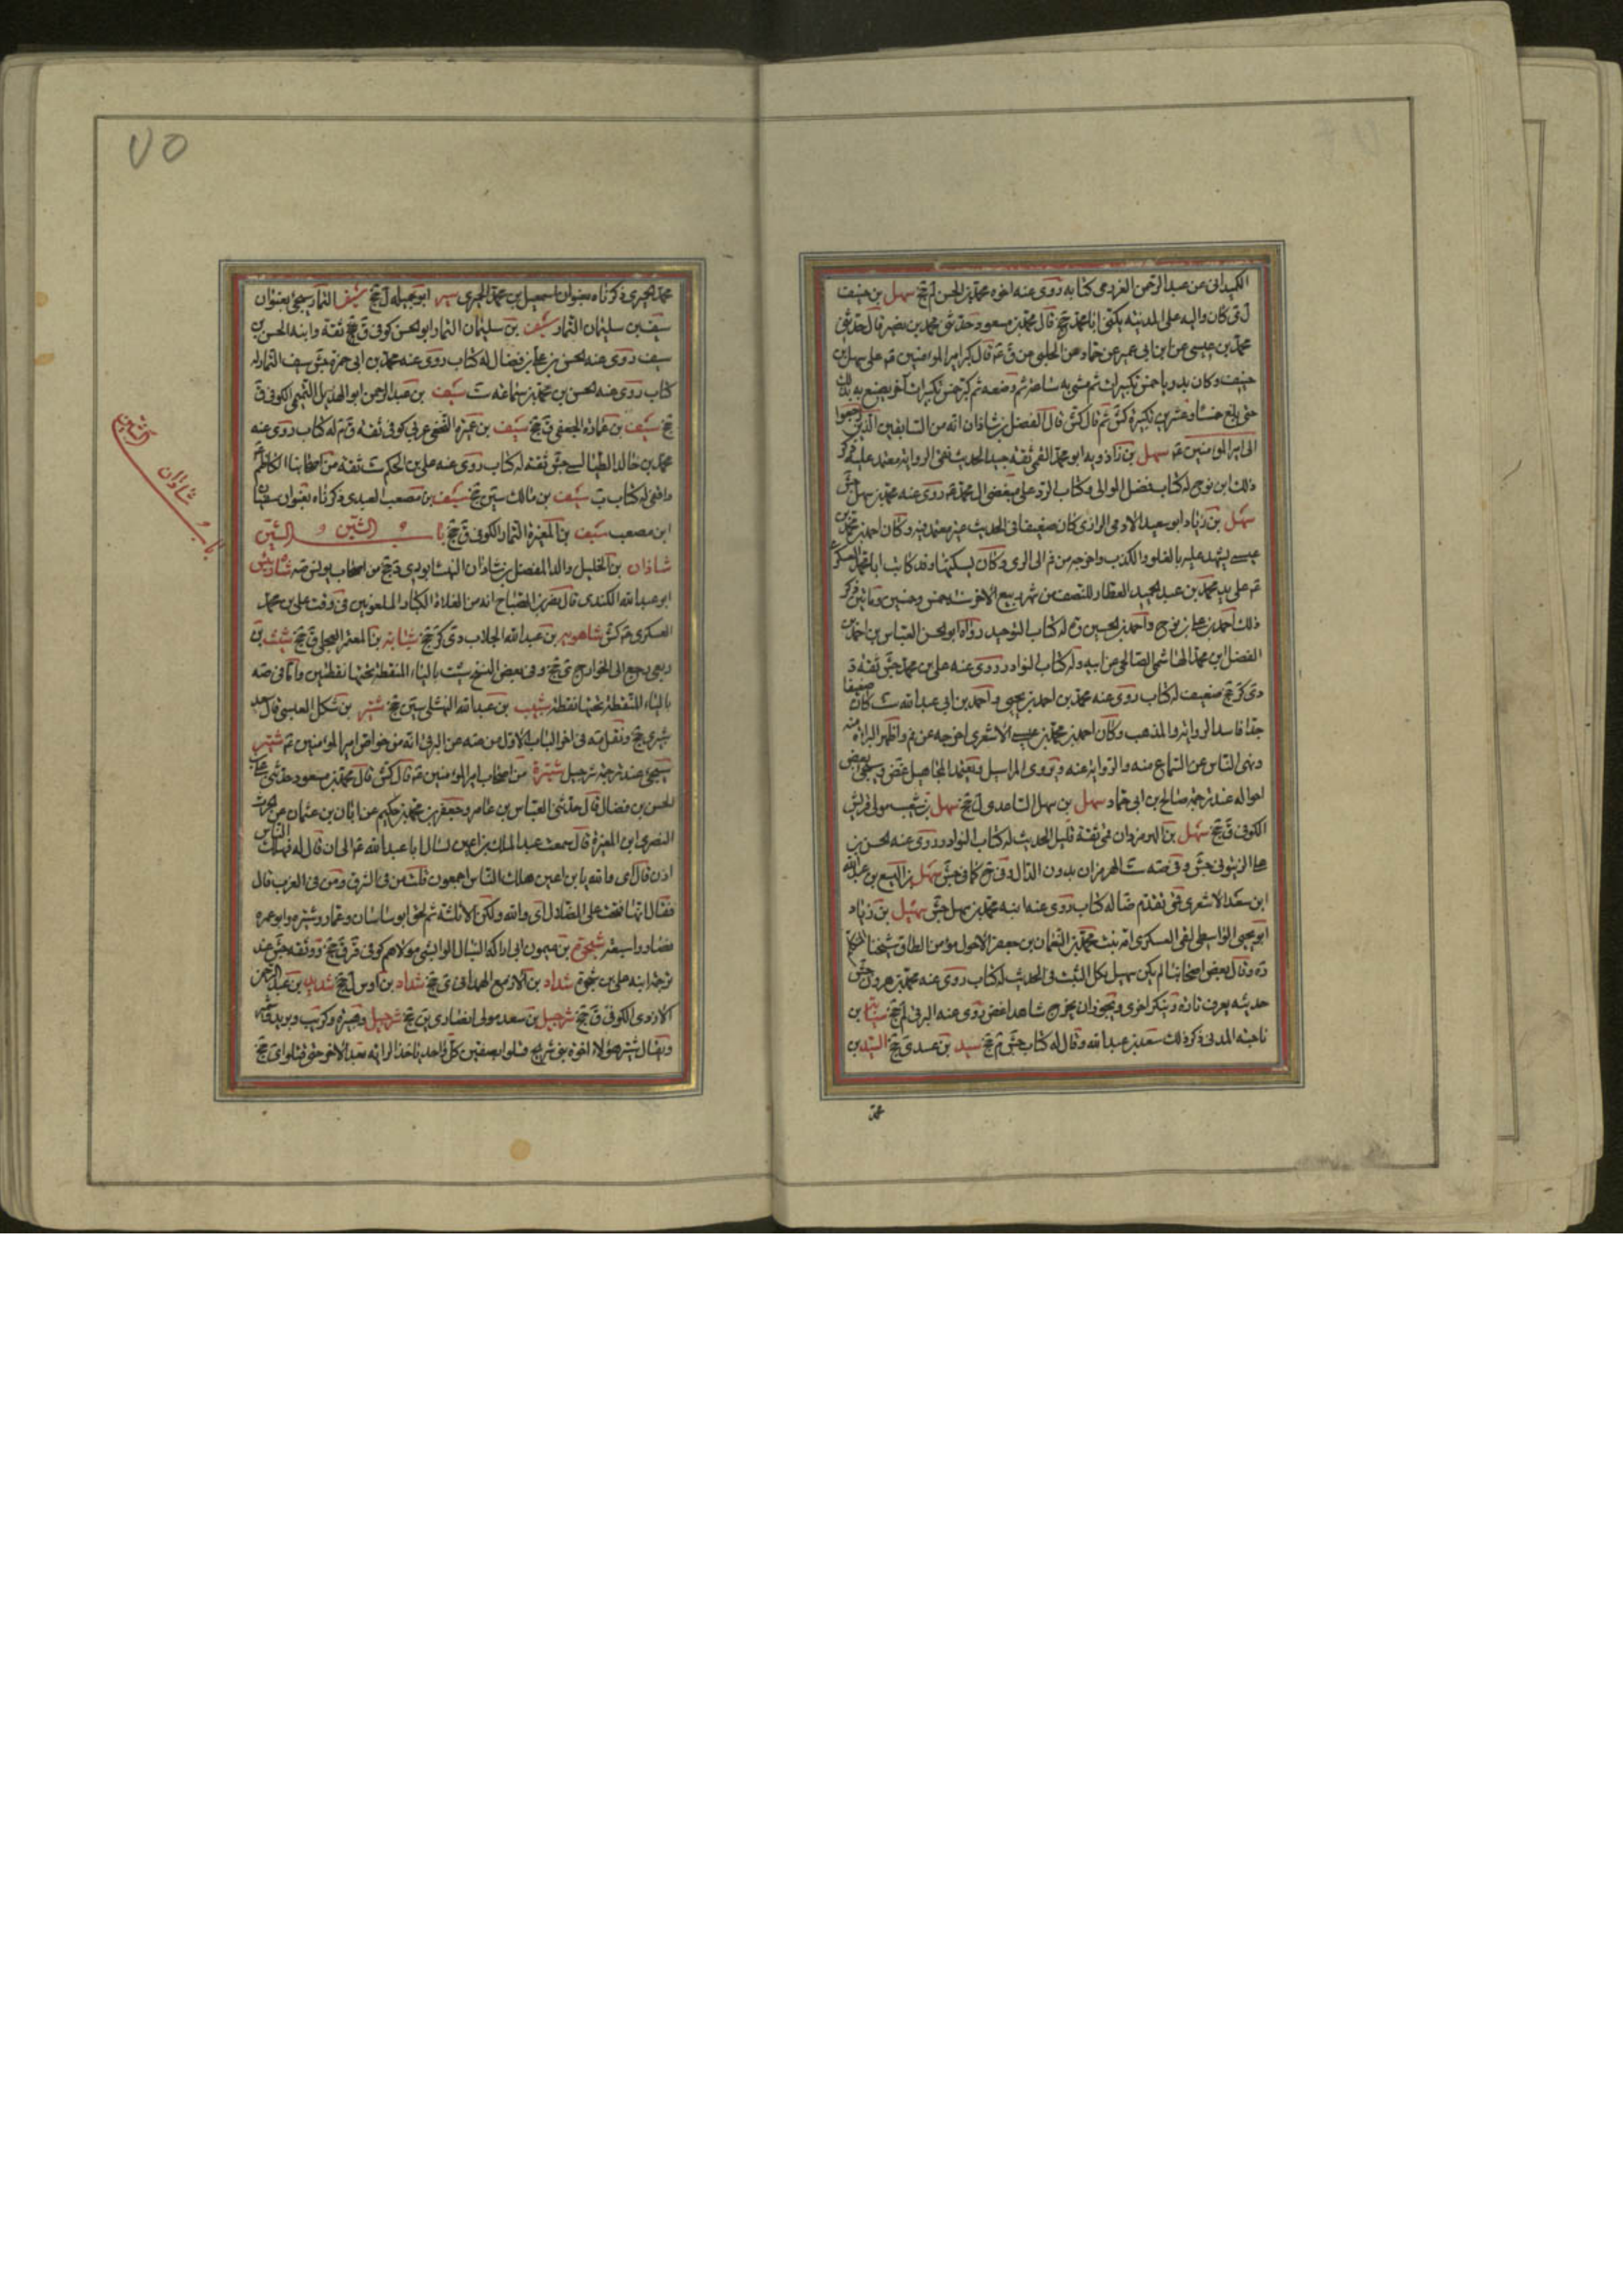 الكيدانى عن عبد الرحمن العزرمى كتابه روى عنه اخوه محمد بن الحسن لم جخ سهل بن حنيف
ل ى كان واليه على المدينة يكنى ابا محمد جخ قال محمد بن مسعود وحدثنى محمد بن نصير قال حدثنى
محمد بن عيسى عن ابن ابى عمير عن حماد عن الحلبى عن ق ع قال كبر امير المؤمنين ع على سهل بن
حنيف وكان بدريا خمس تكبيرات ثم مشى به ساعة ثم وضعه ثم كبر خمس تكبيرات اخر يصنع به ذلك
حتى بلغ خمسا وعشرين تكبيرة كش ثم قال كش قال الفضل بن شاذان انه من السابقين الذين رجعوا
الى امير المؤمنين ع سهل بن زاذويه ابو محمد القمى ثقة جيد الحديث نقى الرواية معتمد عليه ذكر
ذلك ابن نوح له كتاب فضل الموالى وكتاب الرد على مبغضى ال محمد ع روى عنه محمد بن سهل جش
سهل بن زياد ابو سعيد الادمى الرازى كان ضعيفا فى الحديث غير معتمد فيه وكان احمد بن محمد بن
عيسى يشهد عليه بالغلو والكذب واخرجه من قم الى الرى وكان يسكنها وقد كاتب ابا محمد العسكرى
ع على يد محمد بن عبد الحميد العطار للنصف من شهر ربيع الاخر سنة خمس وخمسين ومائتين ذكر
ذلك احمد بن على بن نوح واحمد بن الحسين ع له كتاب التوحيد رواه ابو الحسن العباس بن احمد بن
الفضل بن محمد الهاشمى الصالحى عن ابيه وله كتاب النوادر روى عنه على بن محمد جش ثقة د
دى كر جخ ضعيف له كتاب روى عنه محمد بن احمد بن يحيى واحمد بن ابى عبد الله ست كان ضعيفا
جدا فاسد الرواية والمذهب وكان احمد بن محمد بن عيسى الاشعرى اخرجه عن قم واظهر البراءة منه
ونهى الناس عن السماع منه والرواية عنه ويروى المراسيل ويعتمد المجاهيل غض وسيجئ بعض
احواله عند ترجمة صالح بن ابى حماد سهل بن سهل الساعدى ل جخ سهل بن شعيب مولى قريش
الكوفى ق جخ سهل بن الهرمزان قمى ثقة قليل الحديث له كتاب النوادر روى عنه الحسن بن
على الزيتونى جش وفى صه ست الهرمزان بدون الدال وفى جخ كما فى جش سهل بن اليسع بن عبد الله
ابن سعد الاشعرى قمى تقدم ضا له كتاب روى عنه ابنه محمد بن سهل جش سهيل بن زياد
ابو يحيى الواسطى لقى العسكرى امه بنت محمد بن النعمان بن جعفر الاحول مؤمن الطاق شيخنا المتكلم
ره وقال بعض اصحابنا لم يكن سهيل بكل الثبت فى الحديث له كتاب روى عنه محمد بن هرون جش
حديثه يعرف تارة وينكر اخرى ويجوز ان يخرج شاهدا غض روى عنه البرقى لم جخ سيابة بن
ناجية المدنى ذكر ذلك سعد بن عبد الله وقال له كتاب جش ثم جخ سيد بن عبدى جخ السيد بن
محمد
٧٥
محمد الحميرى ذكرناه بعنوان اسمعيل بن محمد الحميرى سير ابو جميلة ل جخ سيف التمار سيجئ بعنوان
سيف بن سليمان التمار سيف بن سليمان التمار ابو الحسن كوفى ق جخ ثقة وابنه الحسن بن
سيف روى عنه الحسن بن على بن فضال له كتاب روى عنه محمد بن ابى حمزة جش سيف التمار له
كتاب روى عنه الحسن بن محمد بن سماعة ست سيف بن عبد الرحمن ابو الهذيل التميمى الكوفى ق
جخ سيف بن عمارة الجعفى ق جخ سيف بن عميرة النخعى عربى كوفى ثقة ق م له كتاب روى عنه
محمد بن خالد الطيالسى جش ثقة له كتاب روى عنه على بن الحكم ست ثقة من اصحابنا الكاظم
واقفى له كتاب ب سيف بن مالك سين جخ سيف بن مصعب العبدى ذكرناه بعنوان سفيان
ابن مصعب سيف بن المغيرة التمار الكوفى ق جخ باب الشين و الشين
شاذان بن الخليل والد الفضل بن شاذان النيشابورى د جخ من اصحاب يونس صه شاذ رئيس
ابو عبد الله الكندى قال نصر بن الصباح انه من الغلاة الكبار الملعونين فى وقت على بن محمد
العسكرى ع كش شاهويه بن عبد الله الجلاب دى كر جخ شبابة بن المعتمر العجلى ق جخ شبث بن
ربعى رجع الى الخوارج ى جخ وفى بعض النسخ شيث بالياء المنقطة تحتها نقطتين واما فى صه
بالباء المنقطة تحتها نقطة شبيب بن عبد الله النهشلى سين جخ شتير بن شكل العبسى قال سعد
شيرى جخ ونقلته فى اخر الباب الاول من صه عن البرقى انه من خواص امير المؤمنين ع شتير
سيجئ عند ترجمة شرحبيل شتيرة من اصحاب امير المؤمنين ع قال كش قال محمد بن مسعود حدثنى على بن
الحسن بن فضال قال حدثنى العباس بن عامر وجعفر بن محمد بن حكيم عن ابان بن عثمان عن الحرث
النصرى ابن المغيرة قال سمعت عبد الملك بن اعين يسال ابا عبد الله ع الى ان قال له فهلك الناس
اذن قال اى والله يا بن اعين هلك الناس اجمعون قلت من فى الشرق ومن فى الغرب قال
فقال انها فتحت على الضلال اى والله هلكوا الا ثلثة ثم لحق ابو ساسان وعمار وشتيرة وابو عمرة
فصاروا سبعة شجرة بن ميمون ابى اراكة النبال الوابشى مولاهم كوفى قر ق جخ وثقه جش عند
ترجمة ابنه على بن شجرة شداد بن الازمع الهمدانى ى جخ شداد بن اوس ل جخ شديد بن عبد الرحمن
الازدى الكوفى ق جخ شرحبيل بن سعد مولى انصارى ين جخ شرحبيل وهبيرة وكريب وبريد
ويقال شتير هؤلاء اخوة بنى شريح قتلوا بصفين كل واحد ياخذ الراية بعد الاخر حتى قتلوا ى جخ
باب شاذان